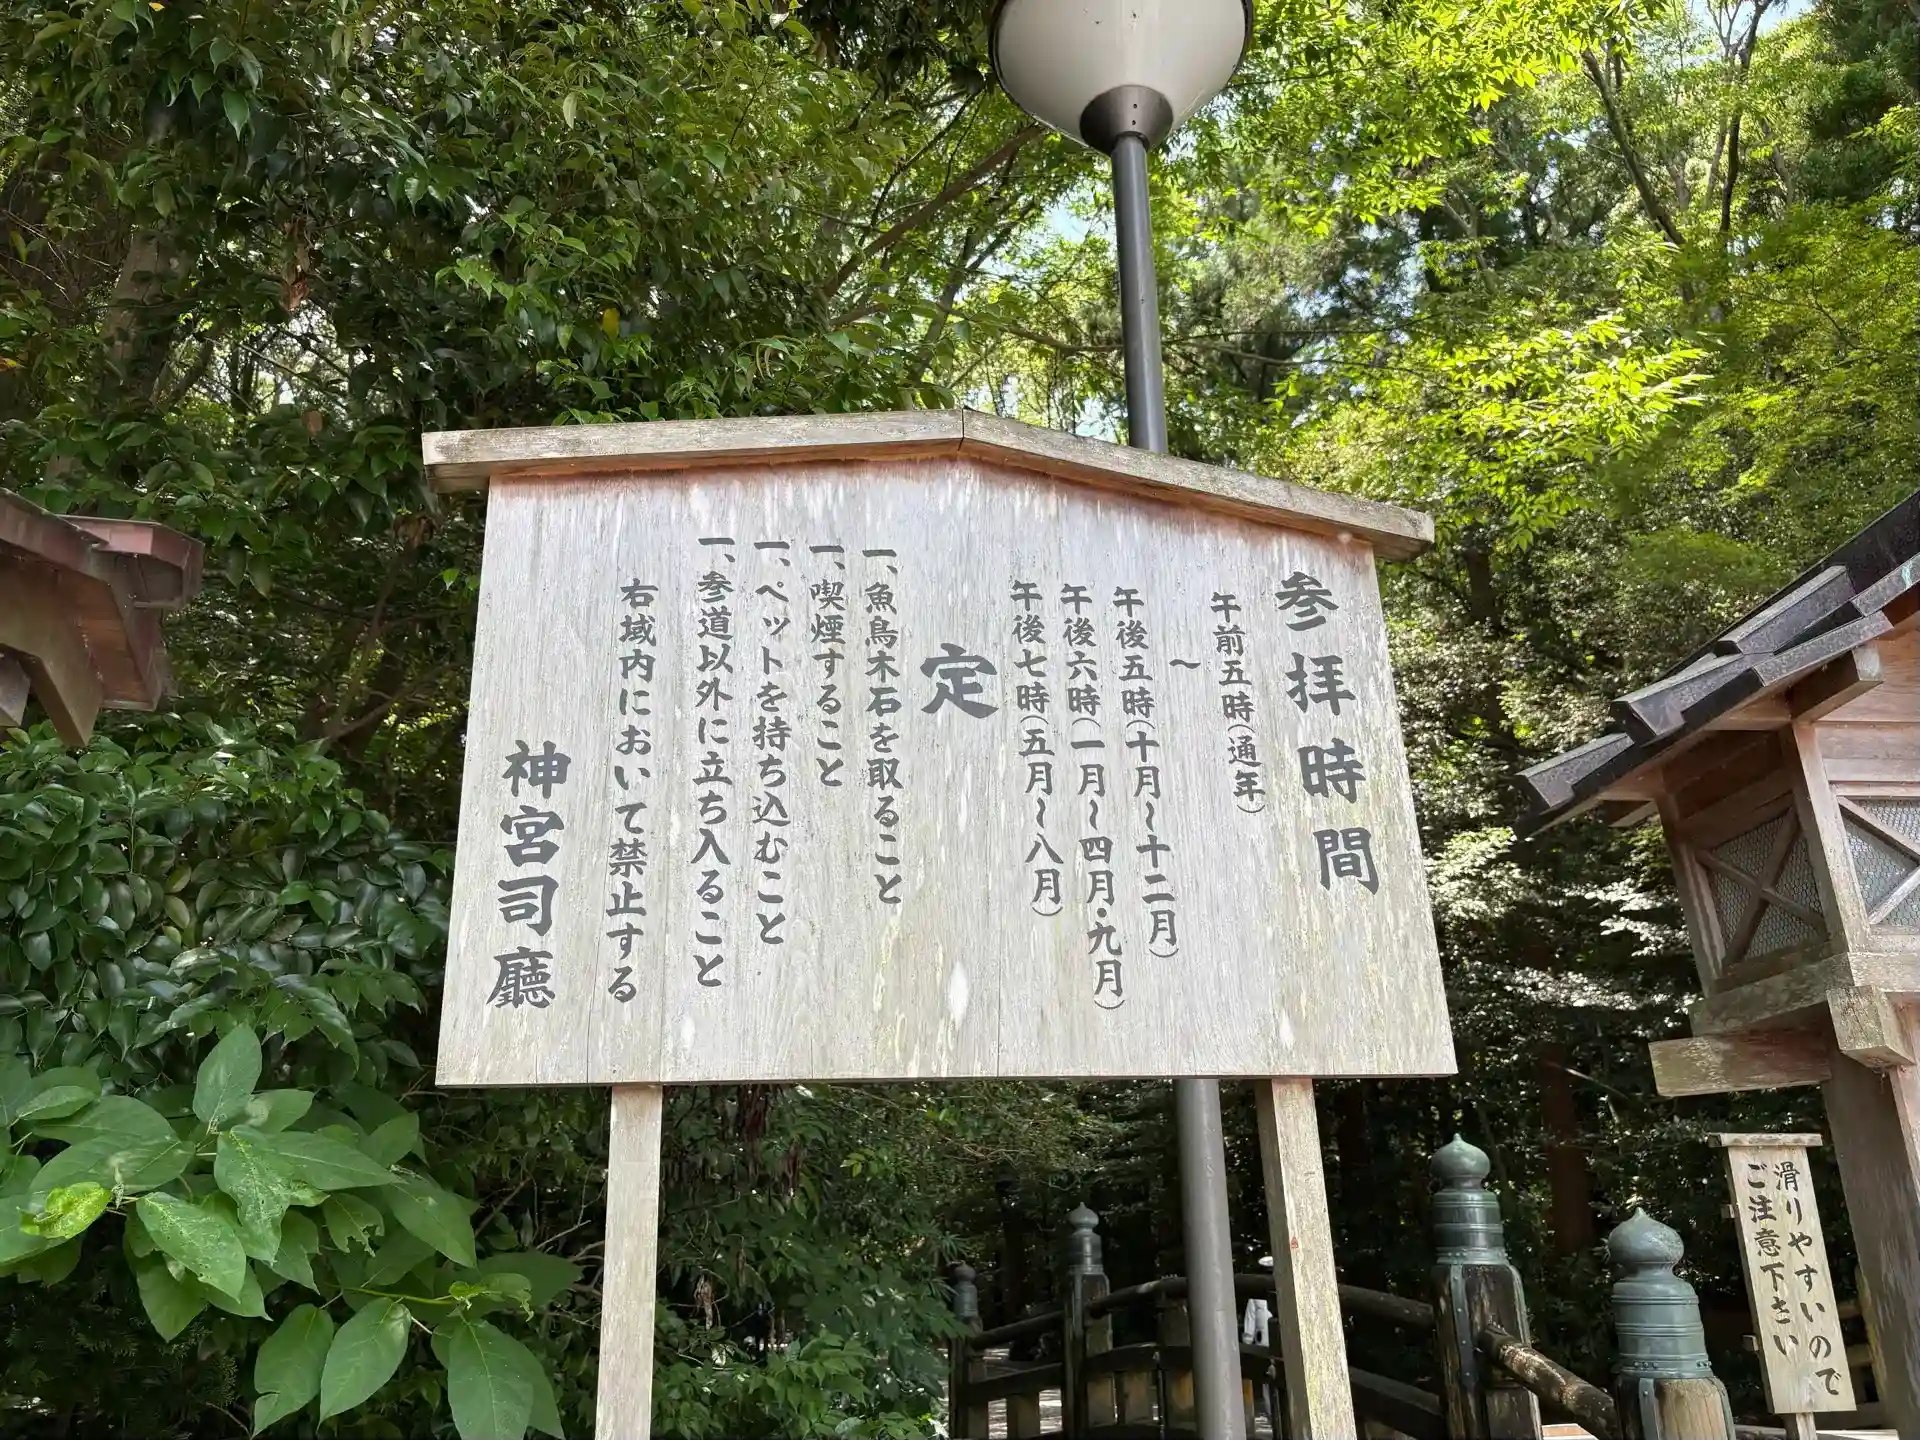 参拝時間
午前五時(通年)
〜
午後五時(十月〜十二月)
午後六時(一月〜四月・九月)
午後七時(五月〜八月)
定
一、魚鳥木石を取ること
一、喫煙すること
一、ペットを持ち込むこと
一、参道以外に立ち入ること
右域内において禁止する
神宮司廳
滑りやすいので
ご注意下さい